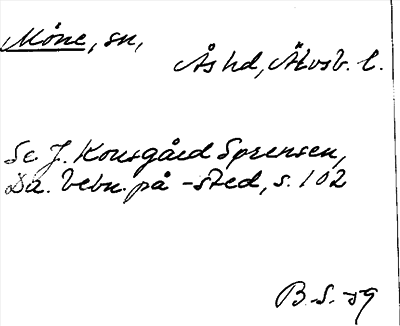 Möne, sn,
Ås hd, Älvsb. l.
Se J. Kousgård Sørensen,
Da. bebn. på -sted, s. 102
B.S. 59